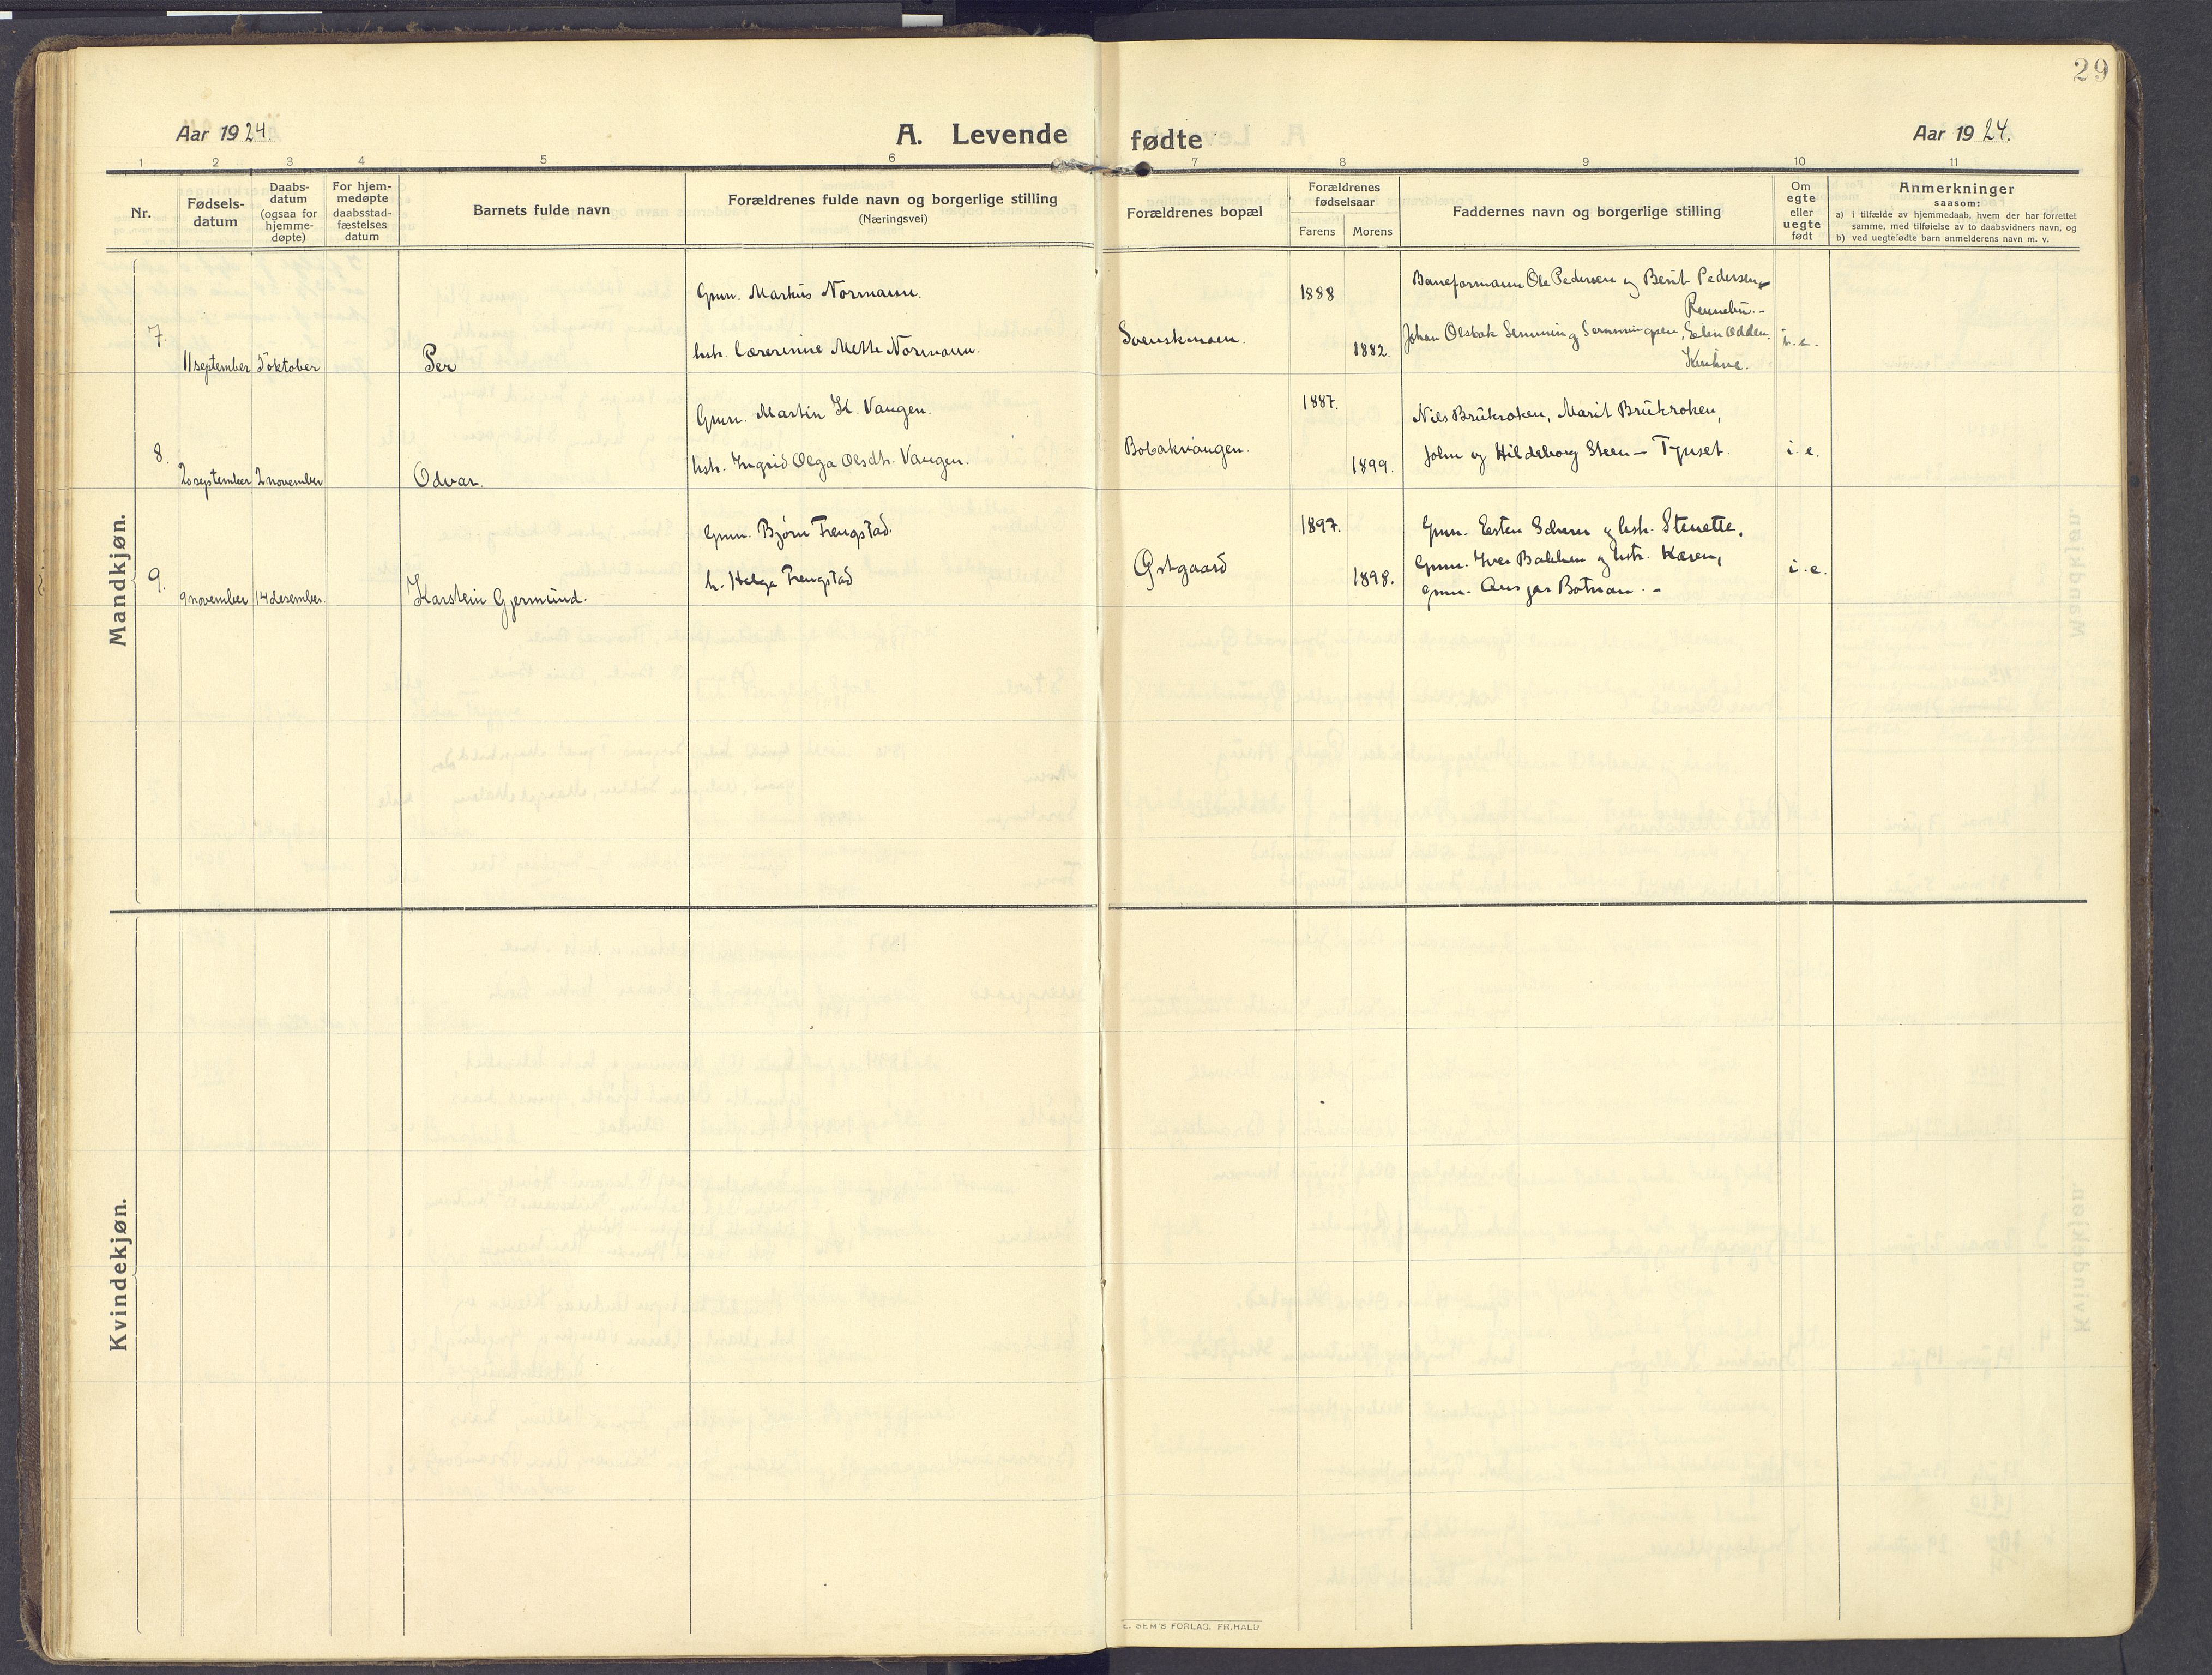 29
Aar 1924.
A. Levende
fødte
Aar 1924.
1 2 3 4 5 6 7 8 9 10 11
Nr.
Fødsels-
datum
Daabs-
datum
(ogsaa for
hjemme-
døpte)
For hjem-
medøpte
daabsstad-
fæstelses
datum
Barnets fulde navn
Forældrenes fulde navn og borgerlige stilling
(Næringsvei)
Forældrenes bopæl
Forældrenes
fødselsaar
Farens
Morens
Faddernes navn og borgerlige stilling
Om
egte
eller
uegte
født
Anmerkninger
saasom:
a) i tilfælde av hjemmedaab, hvem der har forrettet
samme, med tilføielse av to daabsvidners navn, og
b) ved uegte fødte barn anmelderens navn m. v.
Mandkjøn.
7.
11 september
5 oktober
Per
Gmn. Markus Normann.
hstr. lærerinne Mette Normann.
Svenskmoen.
1888
1882.
Baneformann Ole Pedersen og Berit Pedersen,
Rennebu.-
Johan Olsbak Semming Semmingsen, Odden.
Kvikne.
i. e.
8.
20 september
2 november
Odvar.
Gmn. Martin K. Vangen.
hstr. Ingrid Olga Olsdtr. Vangen.
Bobakvangen.
1887.
1899.
Nils Brukroken, Marit Brukroken,
John og Hildeborg Steen - Tynset.
i. e.
9.
9 november
14 desember.
Karstein Gjermund.
Gmn. Bjørn Frengstad.
h. Helga Frengstad
Østgaard
1897.
1898.
Gmn. Esten og hstr. Stenette,
Gmn. Iver Bakken og hstr. Karen,
gmn. Ansgar Botnan. -
i. e.
Kvindekjøn.
E. SEM'S FORLAG. FR.HALD